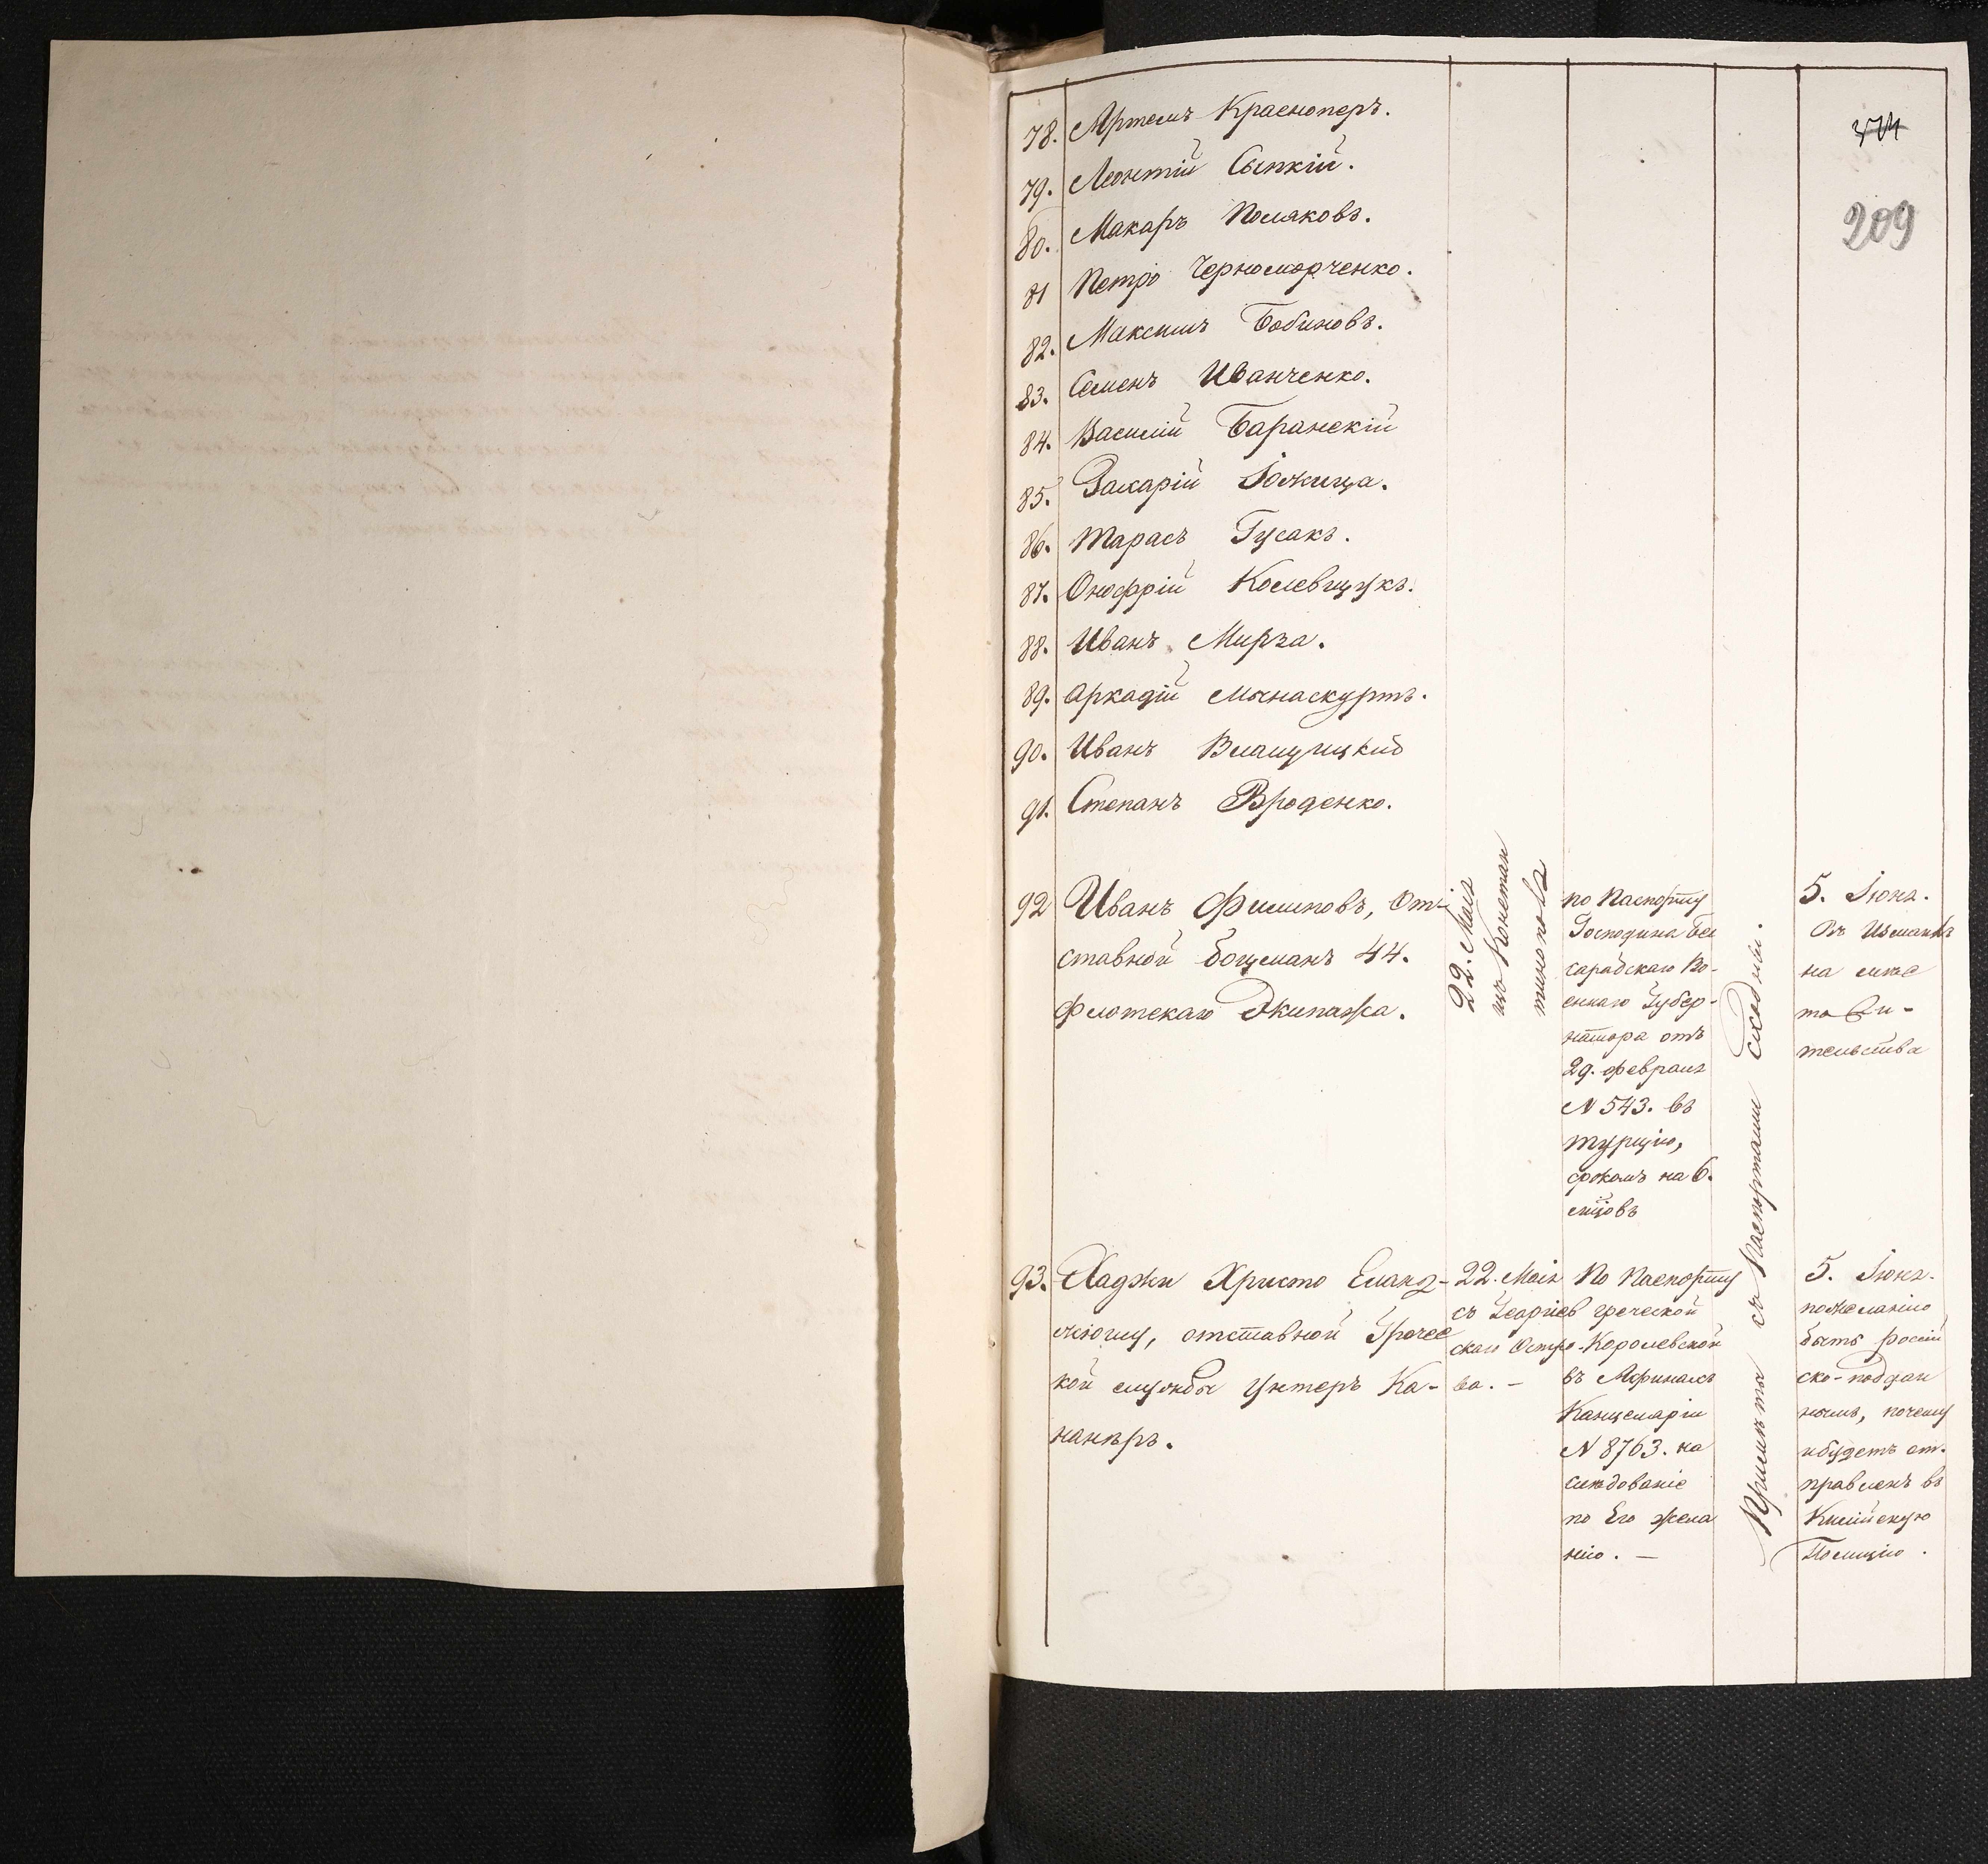 374
209
78. Артемъ Красноперъ.
79. Леонтій Сыпкій.
80. Макаръ Поляковъ.
81 Петро Черноморченко.
82. Максимъ Бобиновъ.
83. Семенъ Иванченко.
84. Василій Баранскій
85. Захарій
86. Тарасъ Гусакъ.
87. Онофрій Колевщукъ.
88. Иванъ Мирза.
89. Аркадій Мынаскуртъ.
90. Иванъ
91. Степанъ Вроденко.
92 Иванъ Филиповъ, От-
ставной боцманъ 44.
Флотскаго Экипажа.
22. Маія
изъ Констан
тинополя
по Паспорту
Господина Бес
сарабскаго Во-
еннаго Губер-
натора отъ
29. февраля
N 543. въ
Турцію,
срокомъ на 6.
мцовъ
5. Іюня.
Въ Измаилъ
на мѣс
то жи-
тельства
93. Хаджи Христо
отставной Гречес
кой службы Унтеръ Ка-
нанѣръ.
22. Маія
съ Георгіев
скаго Остро-
ва. —
По Паспорту
греческой
Королевской
въ Афинахъ
Канцеляріи
N 8763. на
слѣдованіе
по Его жела
нію. —
Примѣты съ Паспортами сходны.
5. Іюня.
пожеланію
быть россій
ско-поддан
нымъ, почему
и будетъ от-
правленъ въ
Килійскую
Полицію.